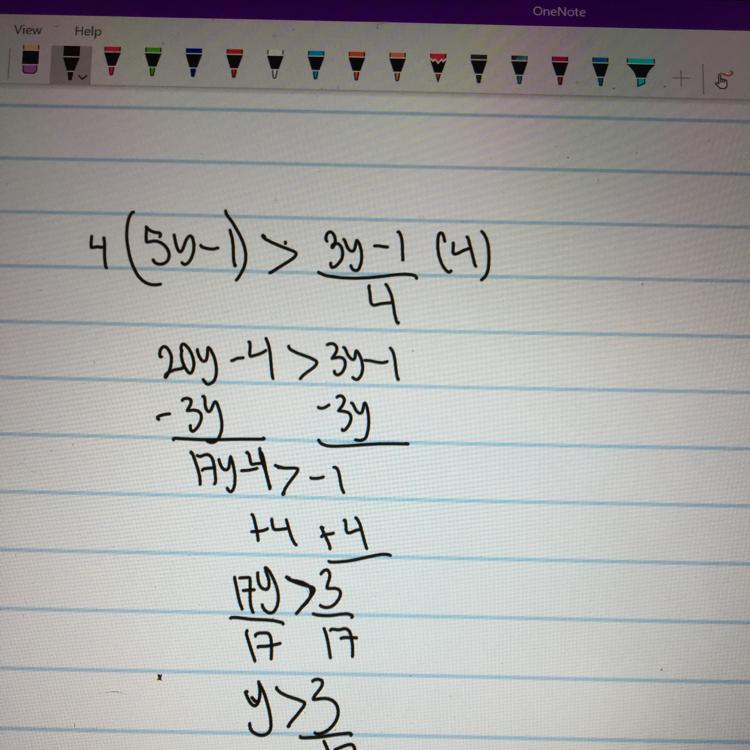 OneNote
View Help
4(5y-1) > 3y-1 (4)
4
20y-4 > 3y-1
-3y -3y
17y-4 > -1
+4 +4
17y > 3
17 17
y > 3